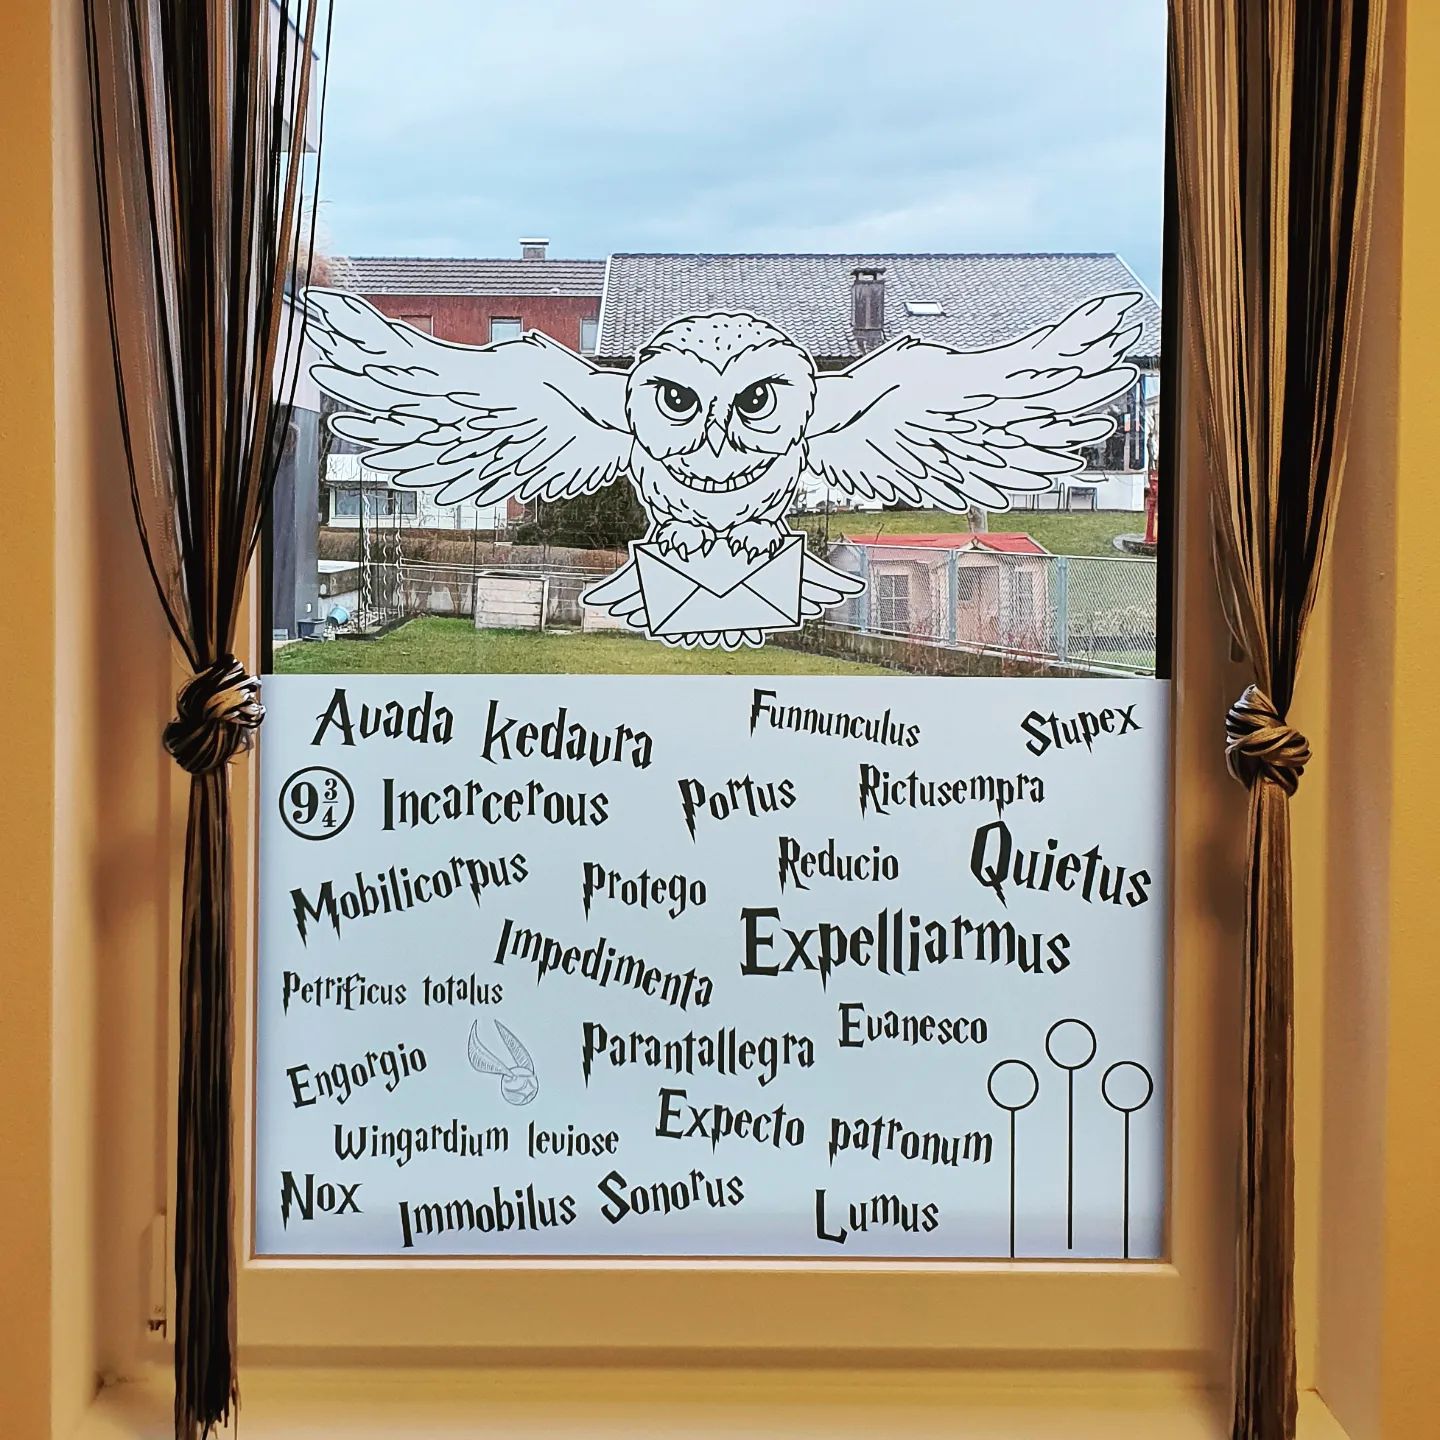 Avada kedavra
Funnunculus
Stupex
9 3/4
Incarcerous
Portus
Rictusempra
Mobilicorpus
Protego
Reducio
Quietus
Impedimenta
Expelliarmus
Petrificus totalus
Parantallegra
Evanesco
Engorgio
Wingardium leviose
Expecto patronum
Nox
Immobilus
Sonorus
Lumus